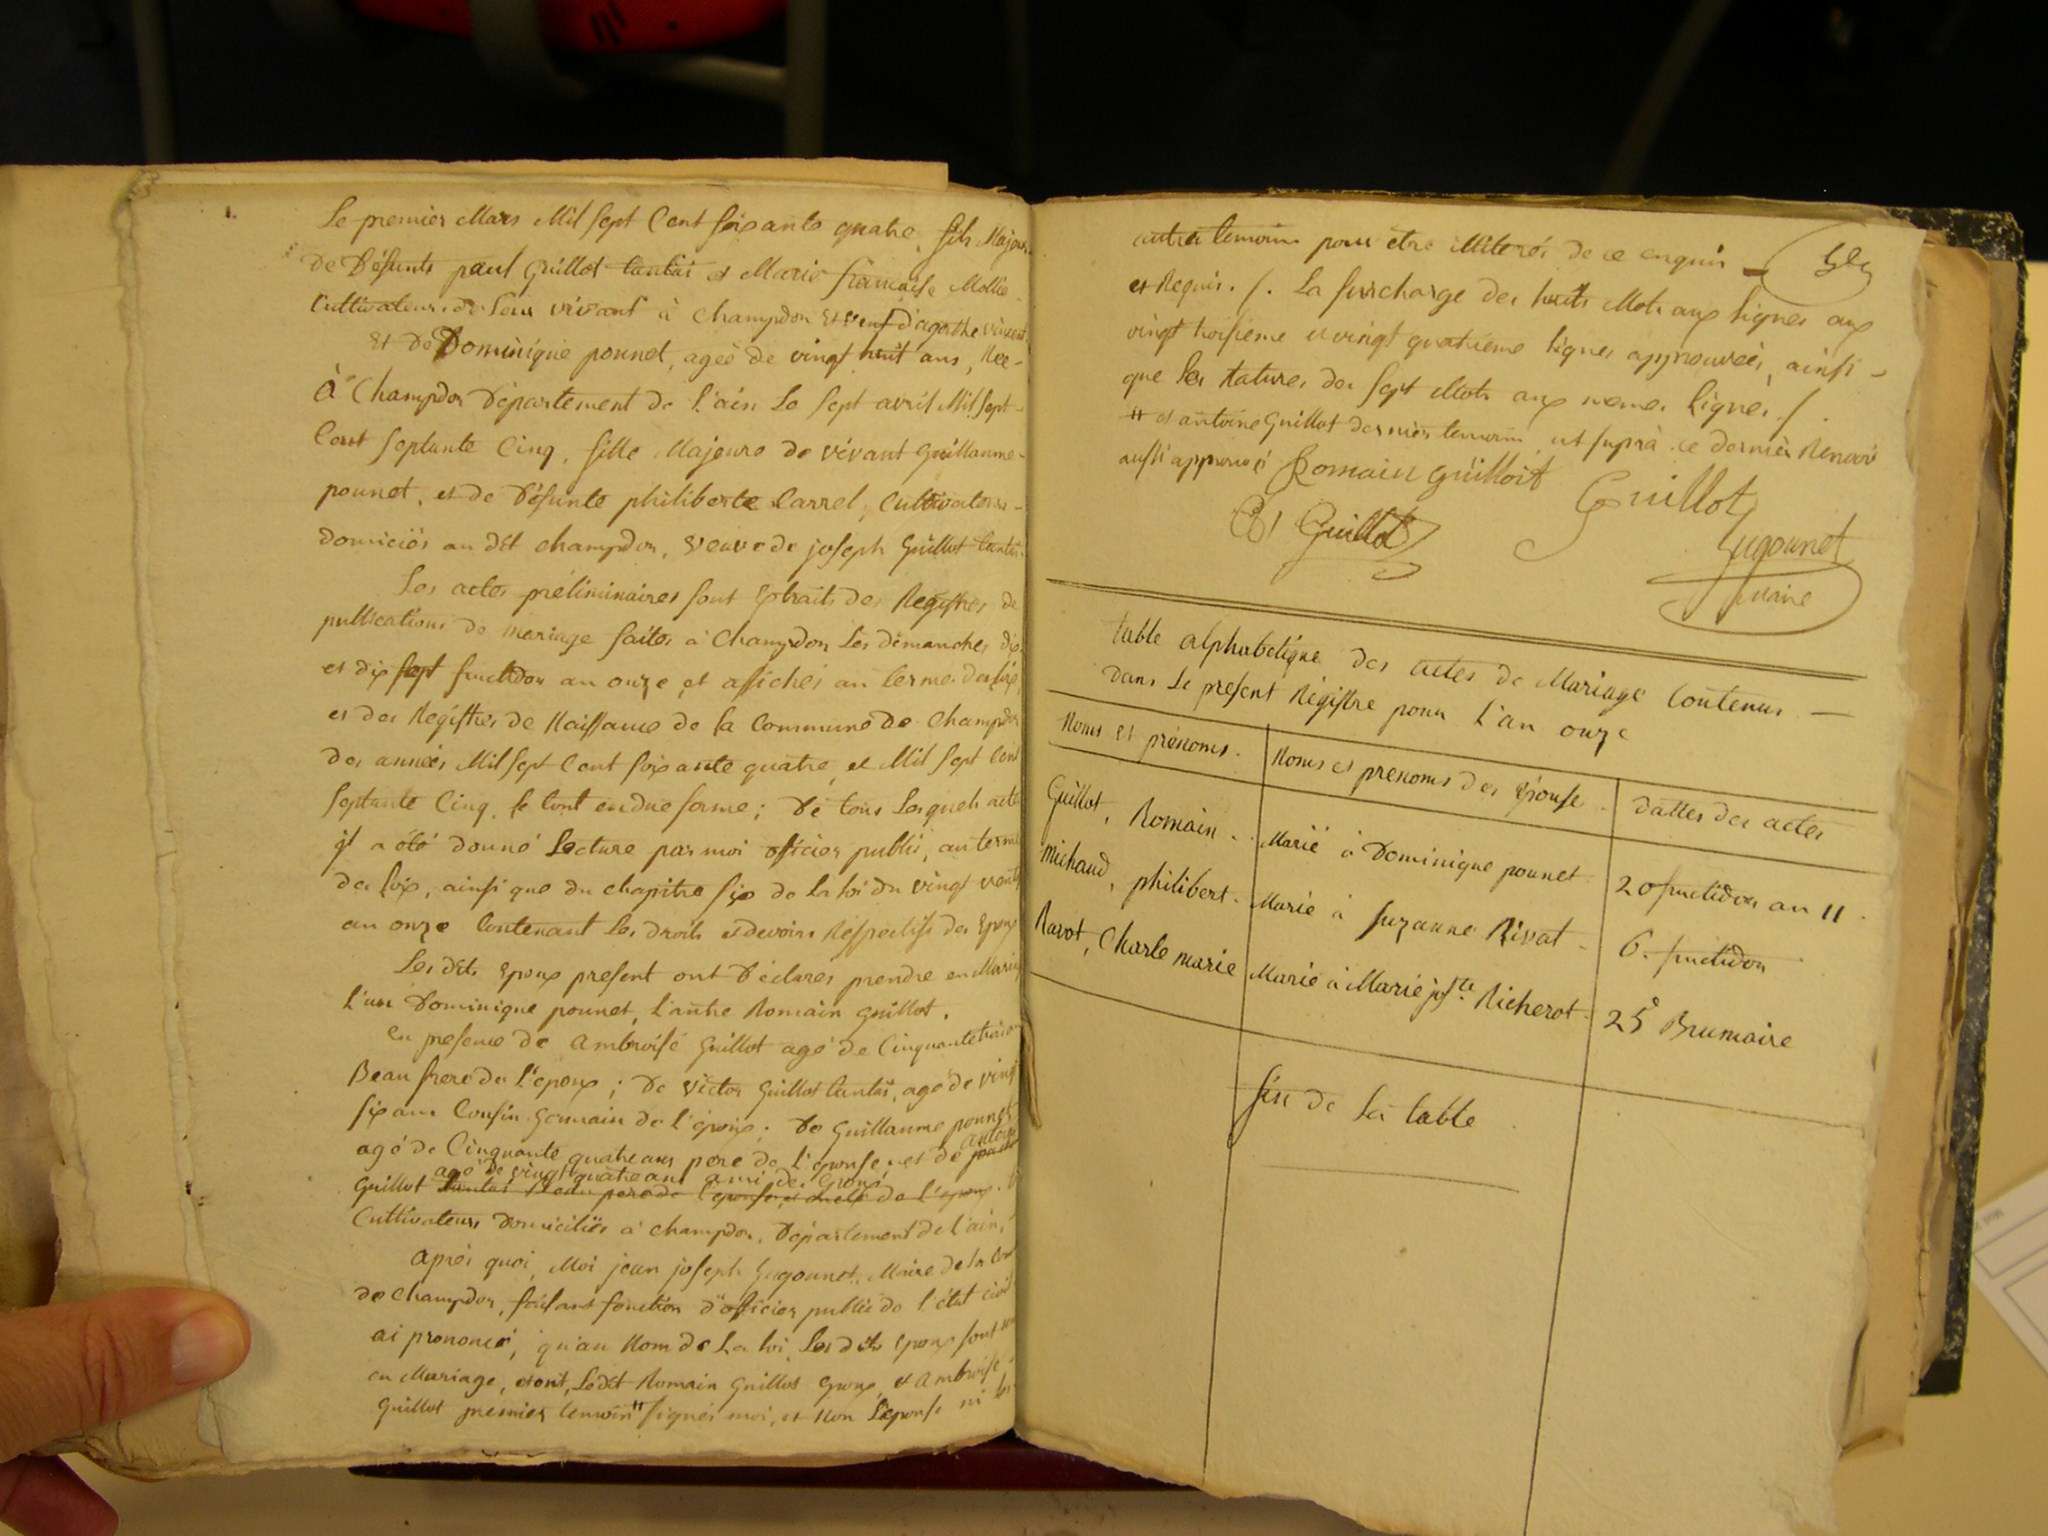 Le premier Mars Mil Sept Cent soixante quatre, fils Majeur
De Défunts paul Guillot tantai et Marie françoise Mollie
Cultivateurs de leur vivant à Champdor et veuf d'agathe vincent
Et De Dominique pounet, ageé de vingt huit ans, Nee
à Champdor Département de l'ain Le sept avril Mil Sept
Cent septante Cinq, fille Majeure de vivant Guillaume
pounet, et de Défunte philiberte Carrel, Cultivateurs
domiciés au dit champdor, veuve de joseph Guillot tantai
Les actes préliminaires sont Extraits des Registres de
publications de mariage faites à Champdor les dimanches dix
et dix sept fructidor an onze et affichés au terme des loix,
et des Registres de Naissance de la Commune de Champdor
des années Mil Sept Cent soixante quatre, et Mil sept Cent
septante Cinq, le tout en due forme; De tous lesquels actes
il a été donné Lecture par moi officier public, au terme
des loix, ainsi que du chapitre six de la loi du vingt ventose
an onze Contenant les droits et devoirs Respectifs des Epoux
Les dits Epoux present ont Déclarés prendre en Mariage
l'un Dominique pounet, l'autre Romain Guillot.
En presence de Ambroise Guillot agé de Cinquante trois ans
Beau frere de l'epoux; De victor Guillot tantai, agé de vingt
six ans Cousin Germain de l'époux; De Guillaume pounet
agé de Cinquante quatre ans pere de l'epouse, et de antoine
agé de vingt quatre ans ami des Epoux
Guillot tantai Beau pere de l'epouse, et oncle de l'epoux.
Cultivateurs Domiciliés à champdor, Département de l'ain,
Après quoi, Moi jean joseph Gugounet, Maire de la Com
de Champdor, faisant fonction d'officier public de l'état civil
ai prononcé, qu'au Nom de La loi, Les dits Epoux sont unis
en Mariage, et ont, Ledit Romain Guillot Epoux, et Ambroise
Guillot premier temoin " signés moi, et Non l'epouse ni les
autres temoins pour etre illiterés de ce enquis
et Requis. /. La surcharge des huits Mots aux lignes aux
vingt troisieme et vingt quatrieme lignes approuvées, ainsi
que les Ratures des sept Mots aux memes lignes. /.
" et antoine Guillot dernier temoin ut suprà ce dernier Renvoi
aussi approuvé Romain guilloit
Guillot
Guillot
Gugounet
maire
table alphabetique des actes de Mariage Contenus
dans Le present Régistre pour L'an onze
Noms et prénoms. Noms et prenoms des Epouse. dattes des actes
Guillot, Romain. Marié à Dominique pounet 20 fructidor an 11
Michaud, philibert. Marié à Suzanne Rivat 6. fructidor
Ravot, Charle marie Marié à Marie jos.te Richerot 25e Brumaire
fin de La table